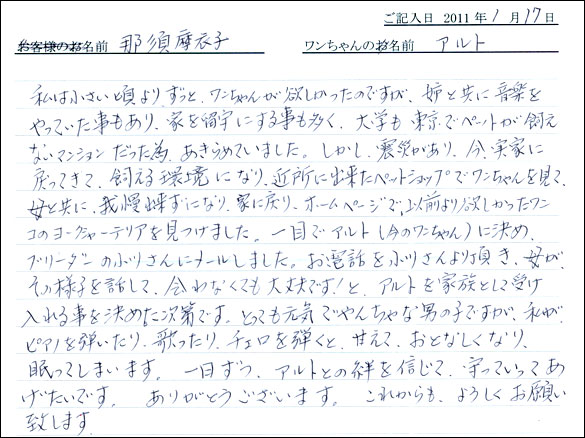 ご記入日 2011年1月17日
お客様のお名前 那須摩衣子 ワンちゃんのお名前 アルト
私は小さい頃より、ずっと、ワンちゃんが欲しかったのですが、姉と共に音楽を
やっていた事もあり、家を留守にする事も多く、大学も東京でペットが飼え
ないマンションだった為、あきらめていました。しかし、震災があり、今、実家に
戻ってきて、飼える環境になり、近所に出来たペットショップでワンちゃんを見て、
母と共に、我慢出来ずになり、家に戻り、ホームページで、以前より欲しかったワン
コのヨークシャーテリアを見つけました。一目でアルト(今のワンちゃん)に決め、
ブリーダーのふりさんにメールしました。お電話をふりさんより頂き、母が、
その様子を話して、会わなくても大丈夫です!と、アルトを家族として受け
入れる事を決めた次第です。とても元気でやんちゃな男の子ですが、私が、
ピアノを弾いたり、歌ったり、チェロを弾くと、甘えて、おとなしくなり、
眠ってしまいます。一日ずつ、アルトとの絆を信じて、守っていってあ
げたいです。ありがとうございます。これからも、ようしくお願い
致します。